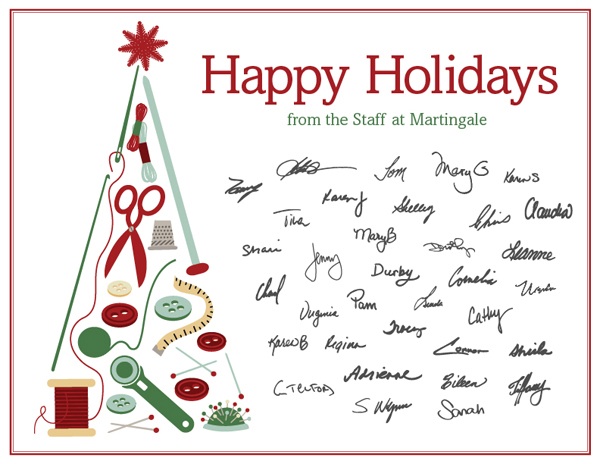 Happy Holidays
from the Staff at Martingale
Tom MaryG Karen S
Karen J Shelley Chris Claudia
Tina
Shari MaryB Dorothy Jeanne
Jenny Durby Cornelia
Chad Linda
Virginia Pam Cathy
Tracey
Karen B Regina Connor Sheila
Adrienne Eileen Tiffany
S Wynn Sarah